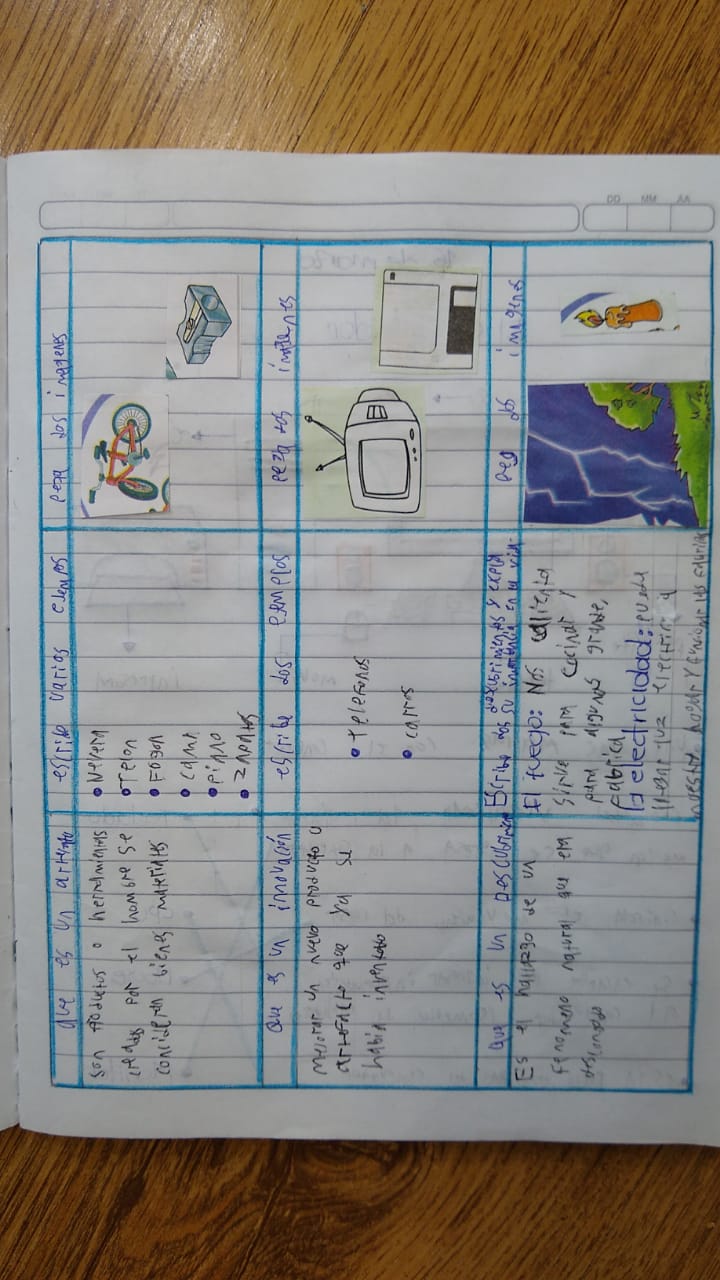 DD MM AA
que es un artefacto
escribe varios ejemplos
pega dos imagenes
Son Productos o herramientas
creadas por el hombre se
concideran bienes materiales
• Nevera
• Fogon
• cama
• piano
• zapatos
que es un innovación
escribe dos ejemplos
pega dos imagenes
mejorar un nuevo producto o
artefacto que ya se
habia inventado
• telefonos
• carros
que es un Descubrimiento
Escribe dos descubrimientos y explica
su importancia en la vida.
Peg dos imagenes
Es el hallazgo de un
Fenomeno natural que era
desconosido
El fuego: Nos calienta
Sirve para Cocinar y
para algunas grande
Fabrica
la electricidad: pueda
llegar luz electrica a
nuestro hogar y funcionar las fabricas